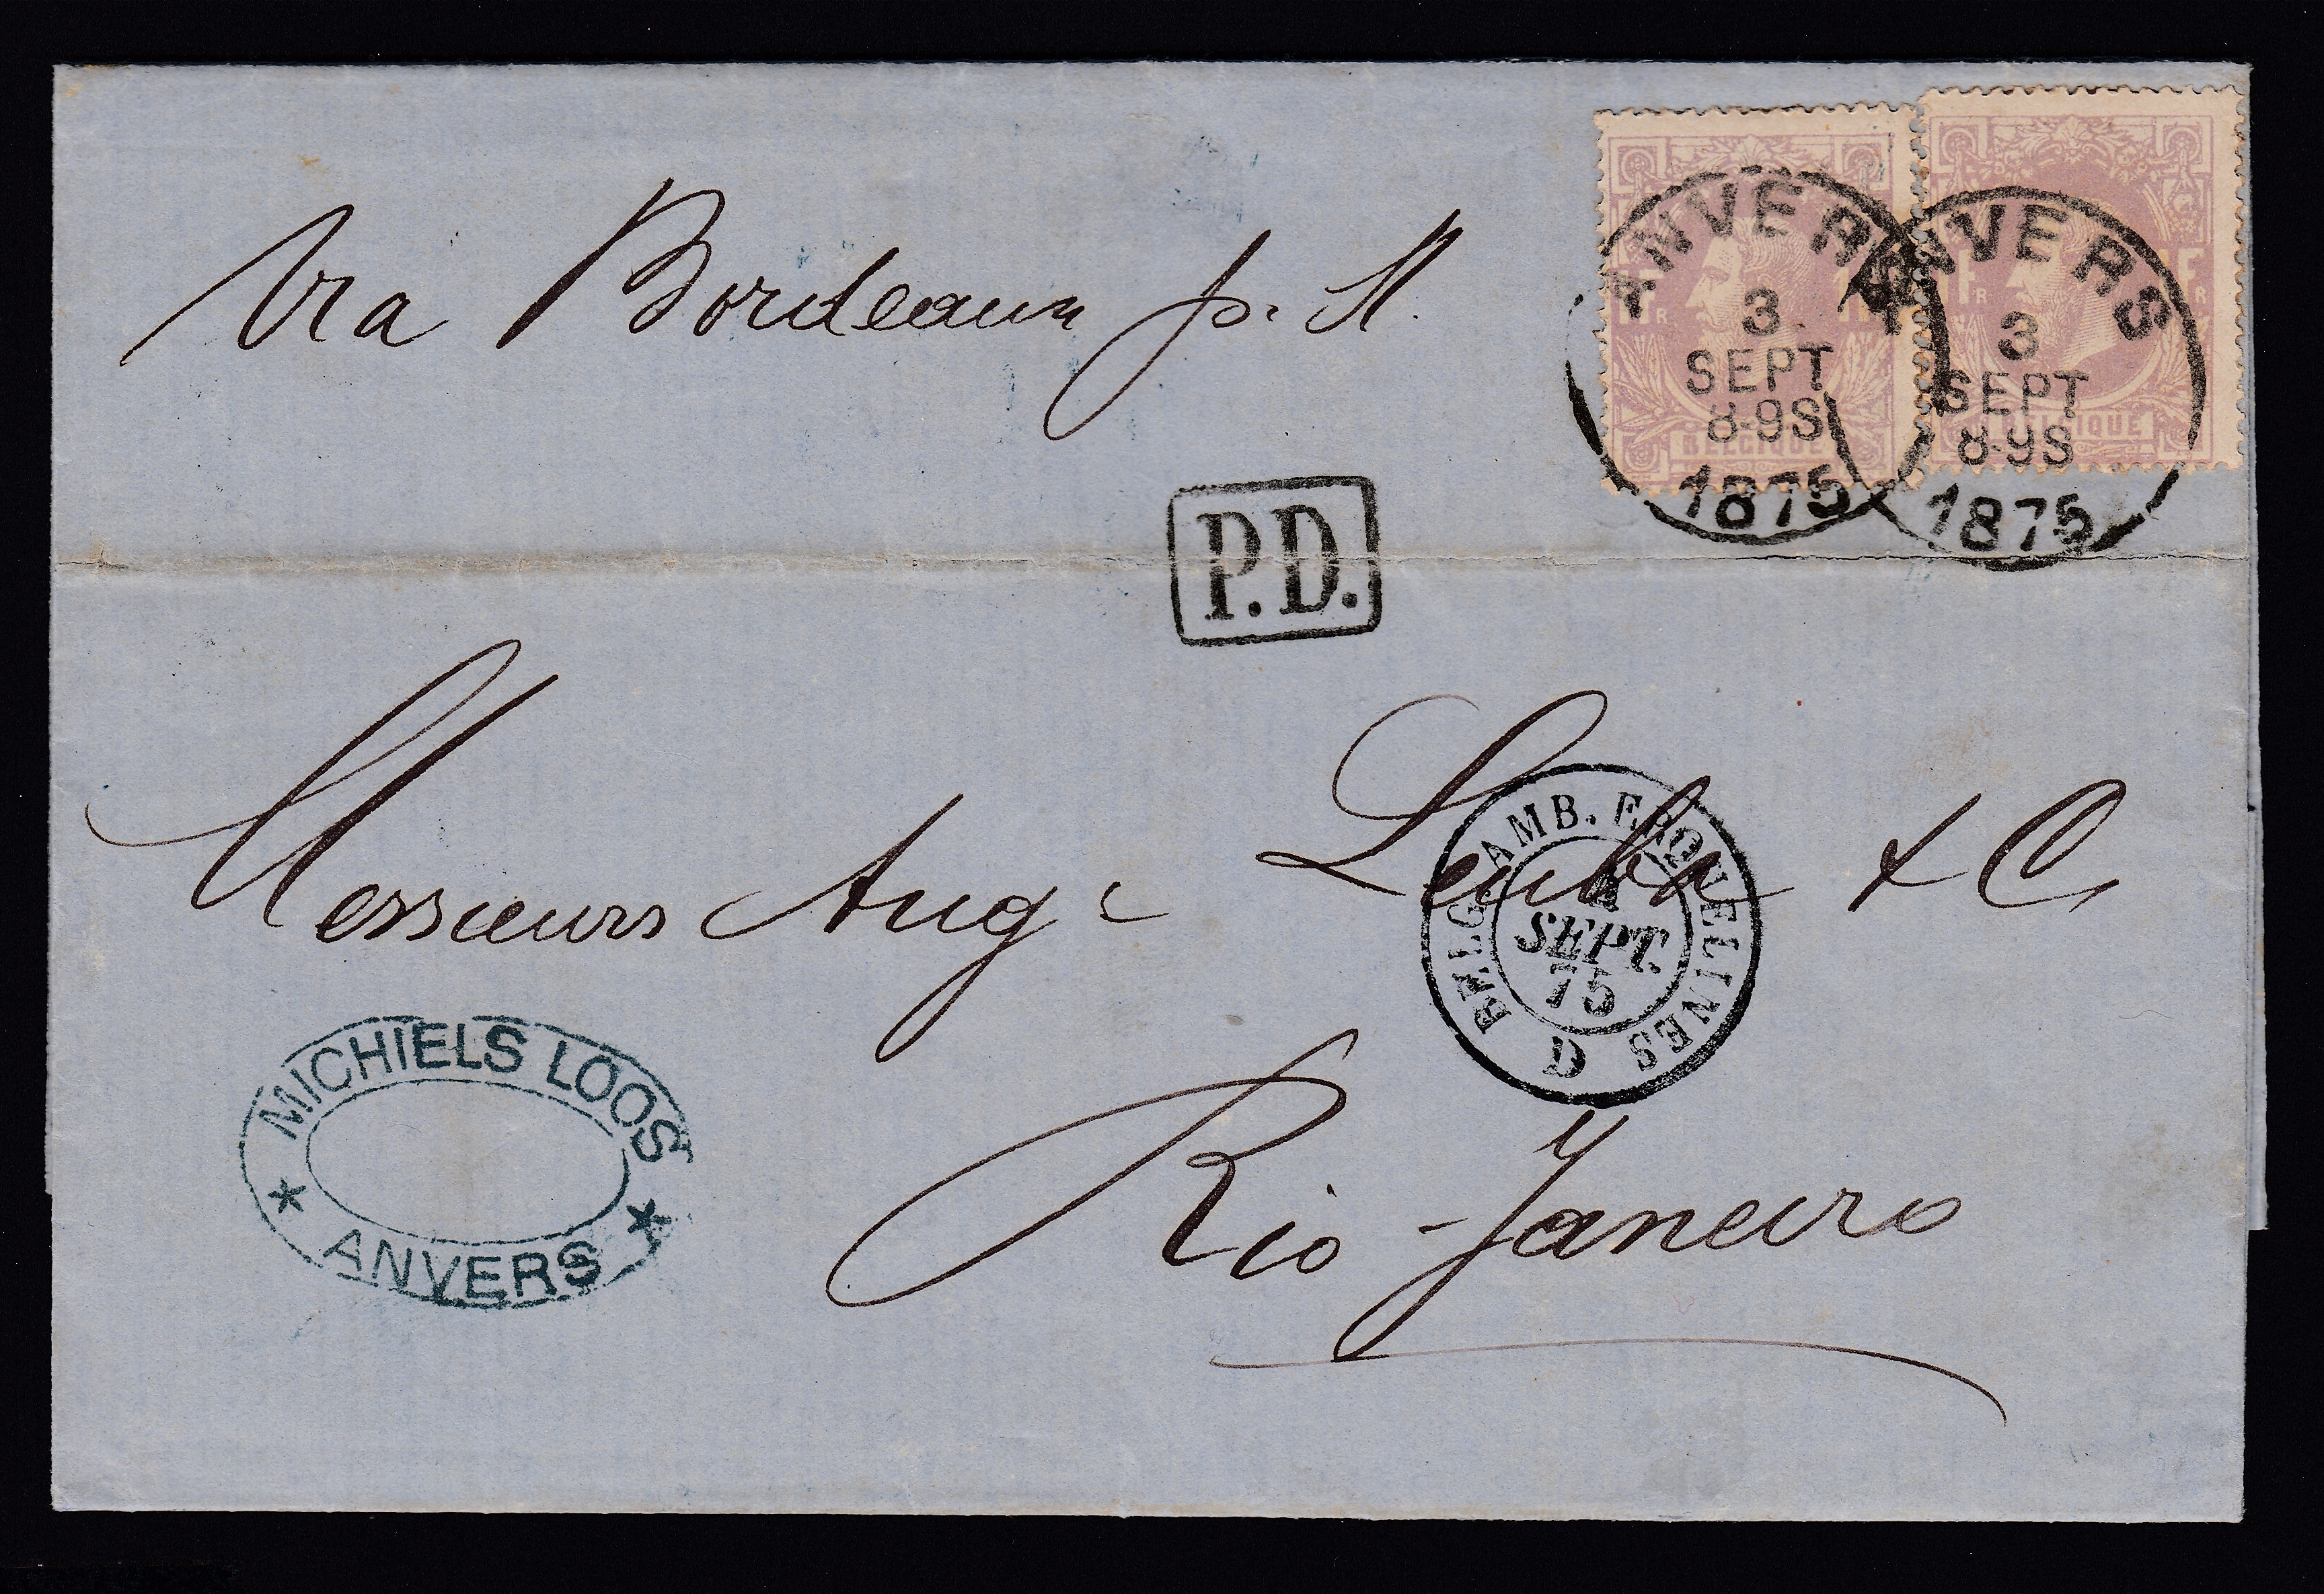 Via Bordeaux p. St.
ANVERS
3
SEPT
8-9S
1875
1 FR
BELGIQUE
ANVERS
3
SEPT
8-9S
1875
P.D.
Messieurs Aug. Leuba & C.
BELG. AMB. ERQUELINES D
SEPT.
75
Rio-Janeiro
MICHIELS LOOS
ANVERS